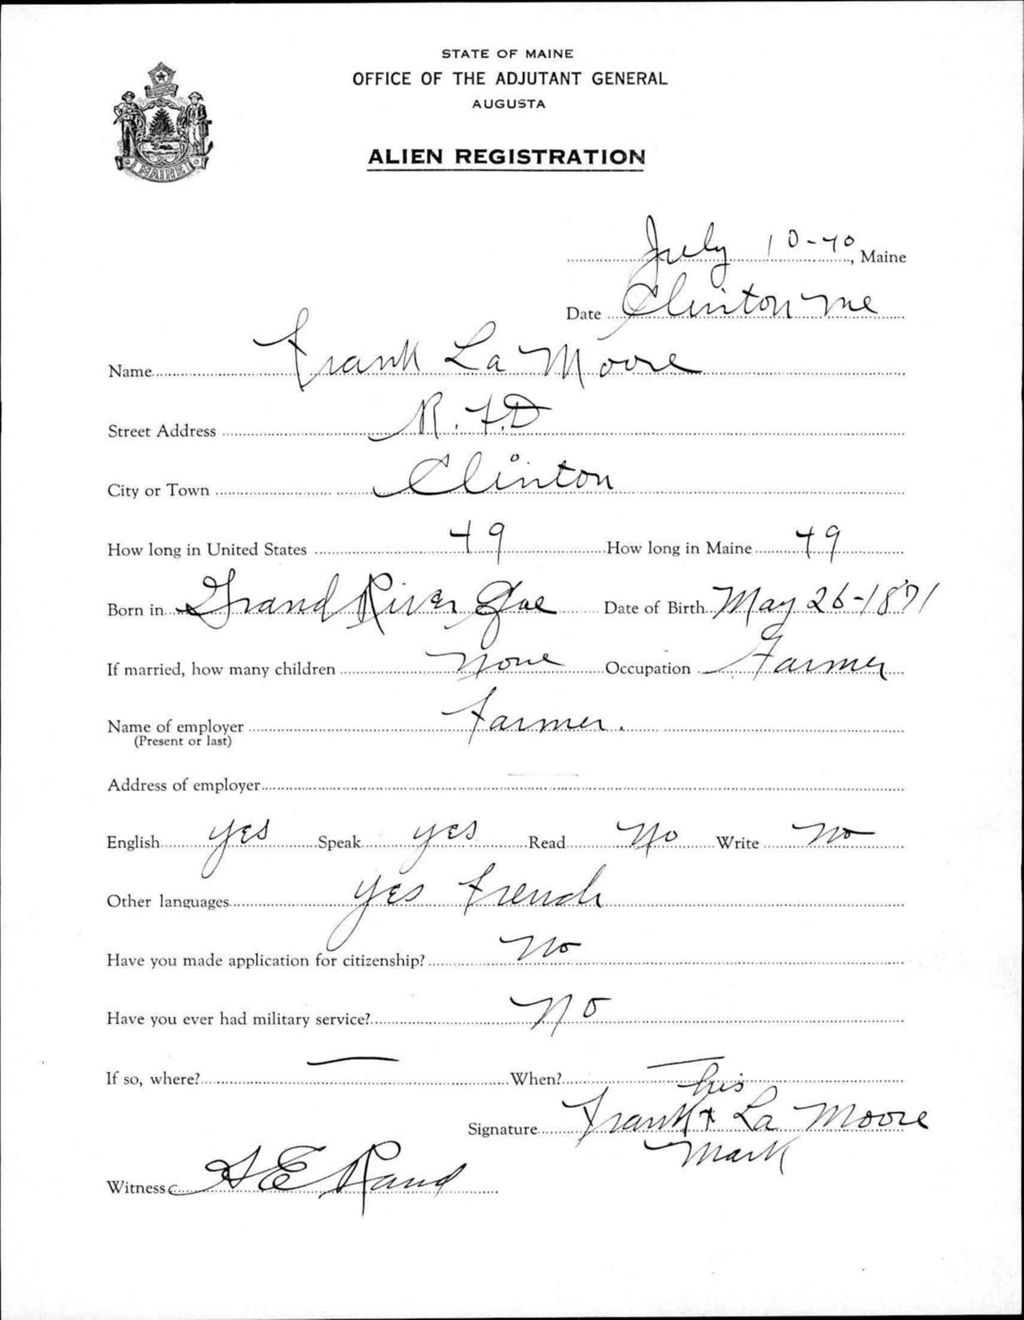 STATE OF MAINE
OFFICE OF THE ADJUTANT GENERAL
AUGUSTA
MAINE
ALIEN REGISTRATION
July 10-40, Maine
Date Clinton Me
Name Frank La Moore
Street Address R. F.D
City or Town Clinton
How long in United States 49 How long in Maine 49
Born in Grand River Que Date of Birth May 26-1871
If married, how many children None Occupation Farmer
Name of employer Farmer.
(Present or last)
Address of employer
English yes Speak yes Read No Write No
Other languages yes French
Have you made application for citizenship? No
Have you ever had military service? No
If so, where? — When? —
his
Signature Frank x La Moore
Mark
Witness Rand